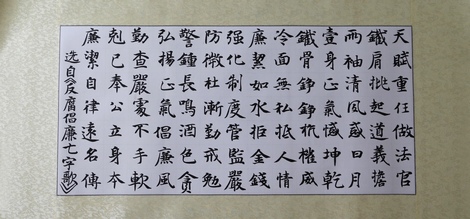 天賦重任做法官
鐵肩挑起道義擔
兩袖清風感日月
壹身正氣憾坤乾
鐵骨錚錚抗權威
冷面無私抵人情
廉絜如水拒金錢
强化制度管監嚴
防微杜漸勤戒勉
警鐘長鳴酒色貪
弘揚正氣倡廉風
勤查嚴處不手軟
剋己奉公立身本
廉潔自律遠名傳
选自《反腐倡廉七字歌》